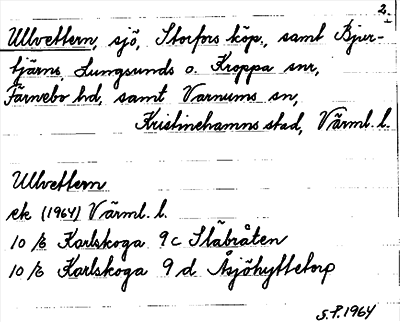 2.
Ullvettern, sjö, Storfors köp., samt Bjur-
tjärns, Lungsunds o. Kroppa snr,
Färnebo hd, samt Varnums sn,
Kristinehamns stad, Värml. l.
Ullvettern
ek (1964) Värml. l.
10 /E Karlskoga 9c Stabråten
10 /E Karlskoga 9d Åsjöhyttetorp
S.P. 1964